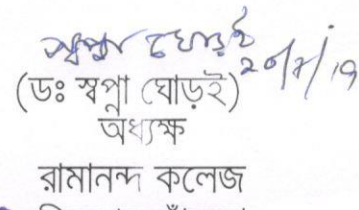 স্বপ্না ঘোড়ই
(ডঃ স্বপ্না ঘোড়ই)
অধ্যক্ষ
রামানন্দ কলেজ